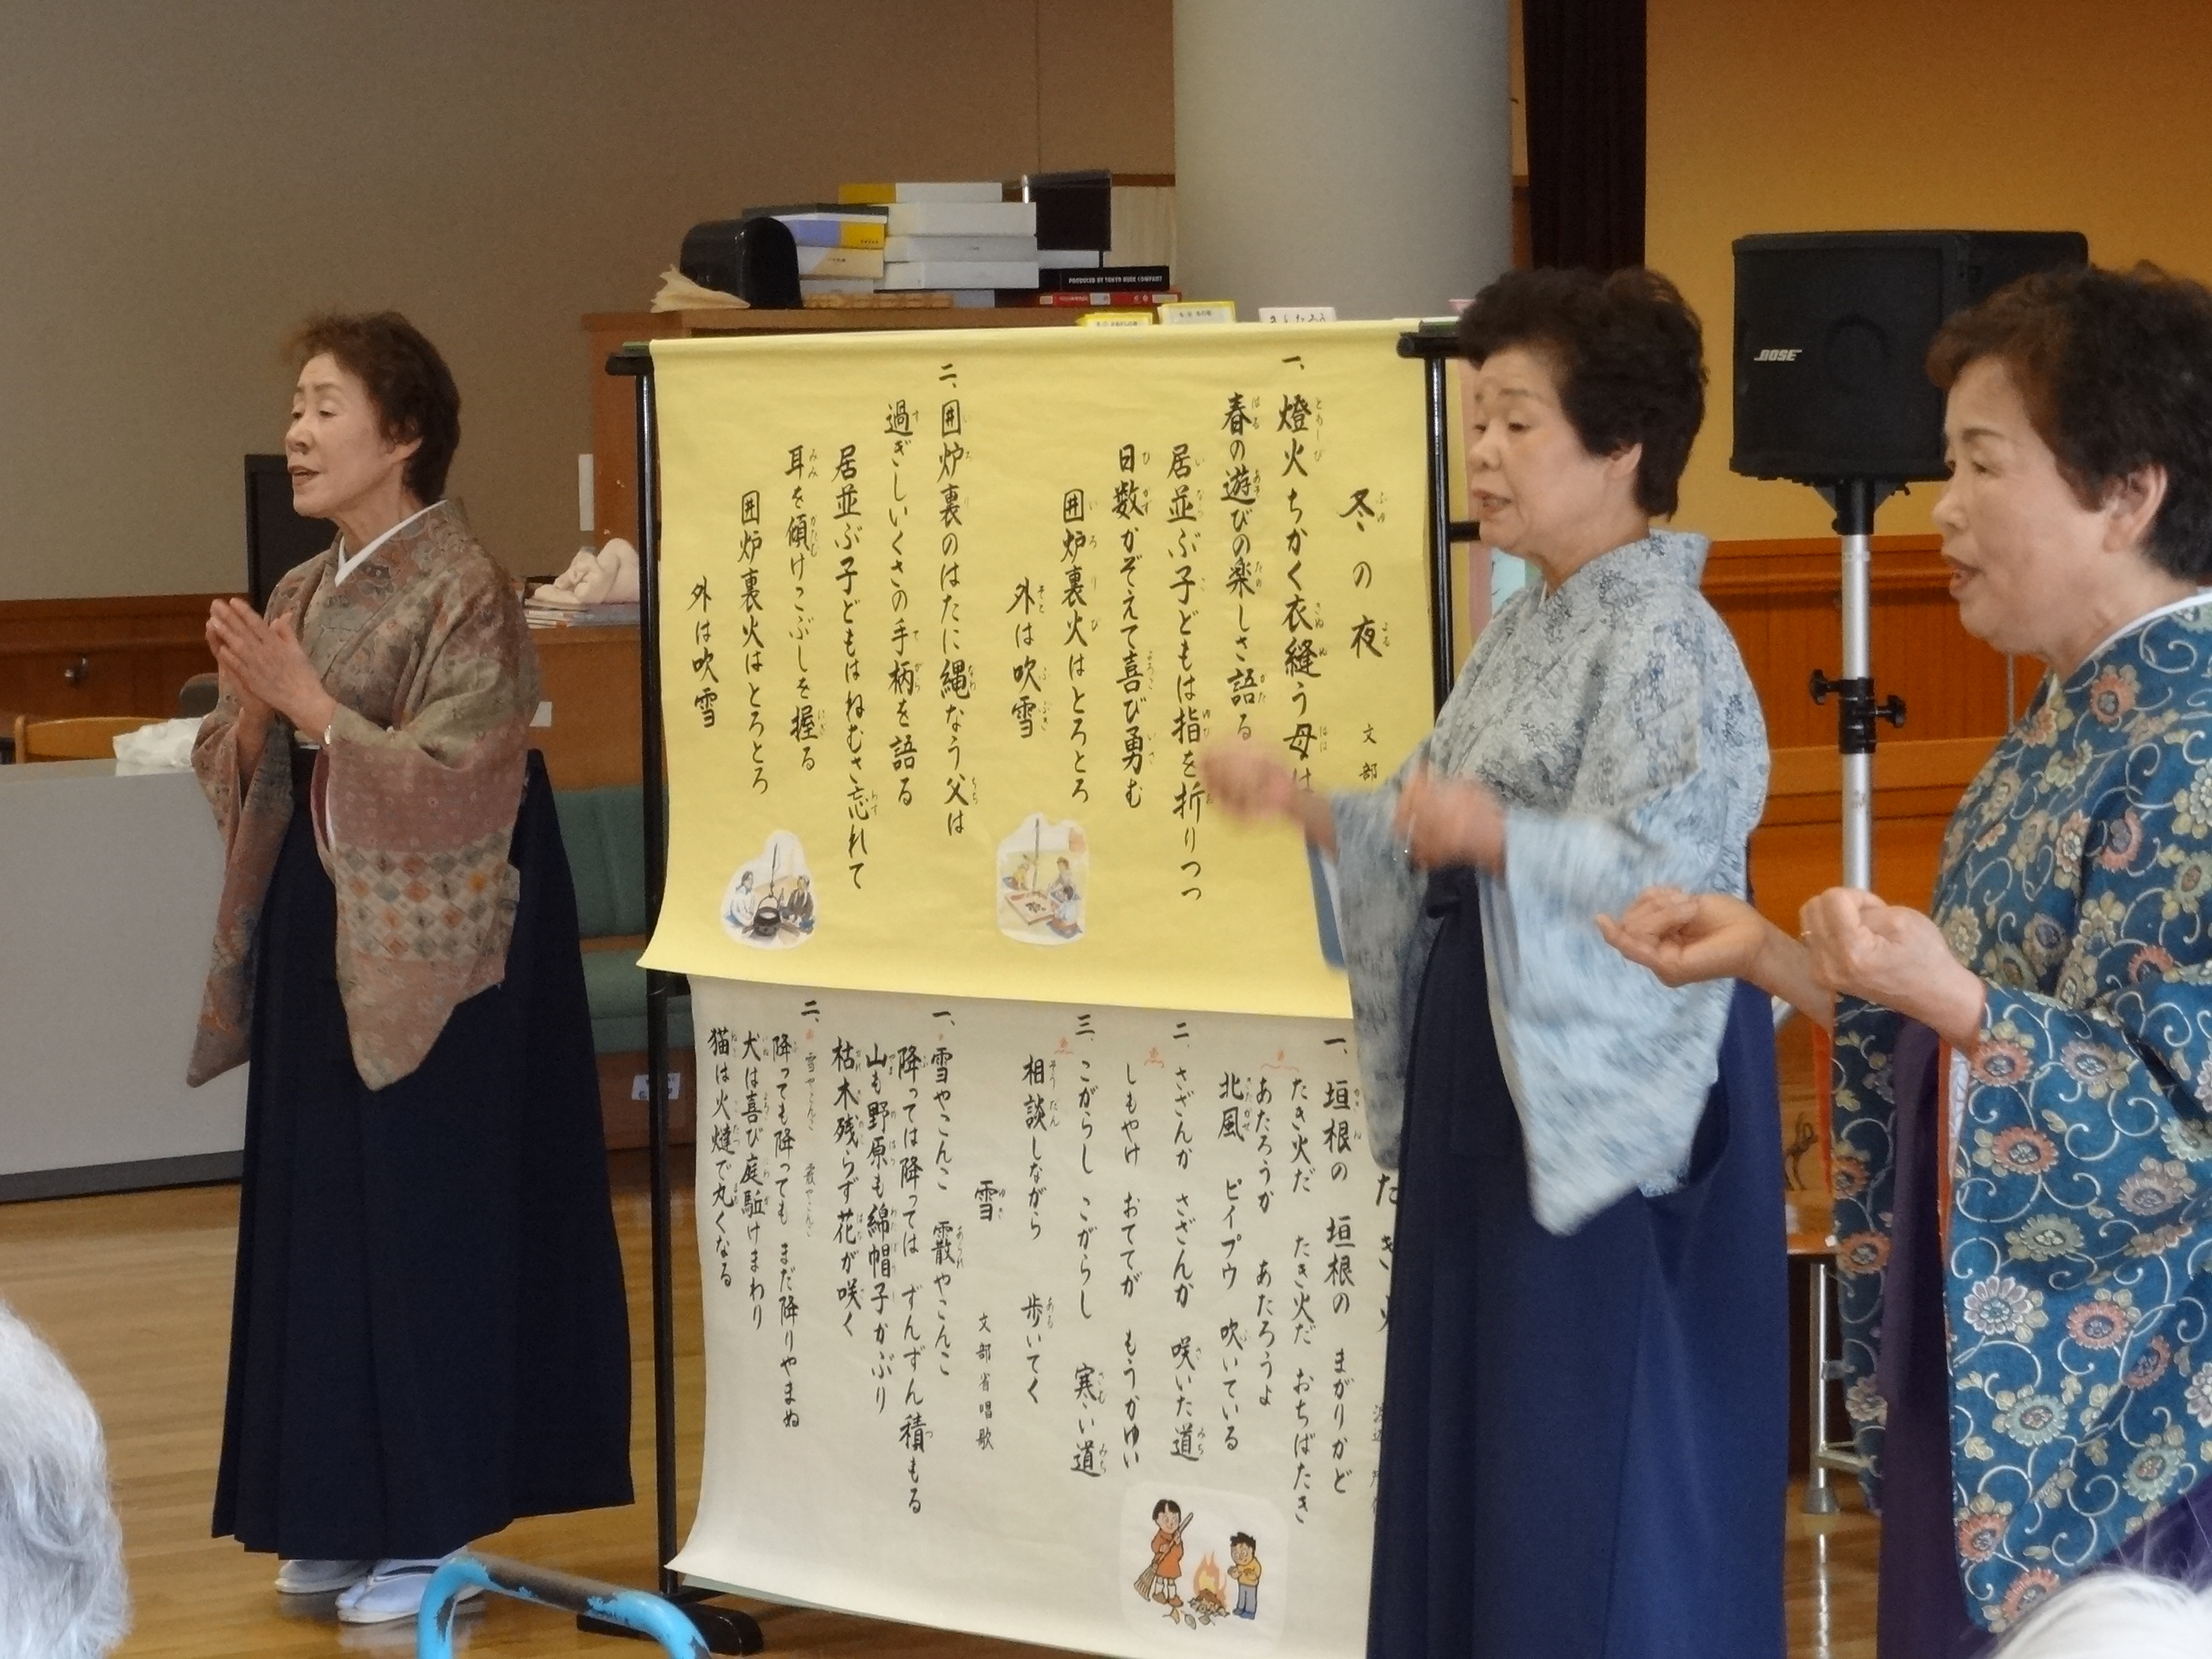 冬の夜
文部
一、燈火ちかく衣縫う母は
春の遊びの楽しさ語る
居並ぶ子どもは指を折りつつ
日数かぞえて喜び勇む
囲炉裏火はとろとろ
外は吹雪
二、囲炉裏のはたに縄なう父は
過ぎしいくさの手柄を語る
居並ぶ子どもはねむさ忘れて
耳を傾けこぶしを握る
囲炉裏火はとろとろ
外は吹雪
たき火
一、垣根の 垣根の まがりかど
たき火だ たき火だ おちばたき
あたろうか あたろうよ
北風 ピイプウ 吹いている
二、さざんか さざんか 咲いた道
しもやけ おててが もうかゆい
三、こがらし こがらし 寒い道
相談しながら 歩いてく
雪
文部省唱歌
一、雪やこんこ 霰やこんこ
降っては降っては ずんずん積もる
山も野原も綿帽子かぶり
枯木残らず花が咲く
二、雪やこんこ 霰やこんこ
降っても降っても まだ降りやまぬ
犬は喜び庭駈けまわり
猫は火燵で丸くなる
BOSE
PRODUCED BY TOKYO NUDE COMPANY